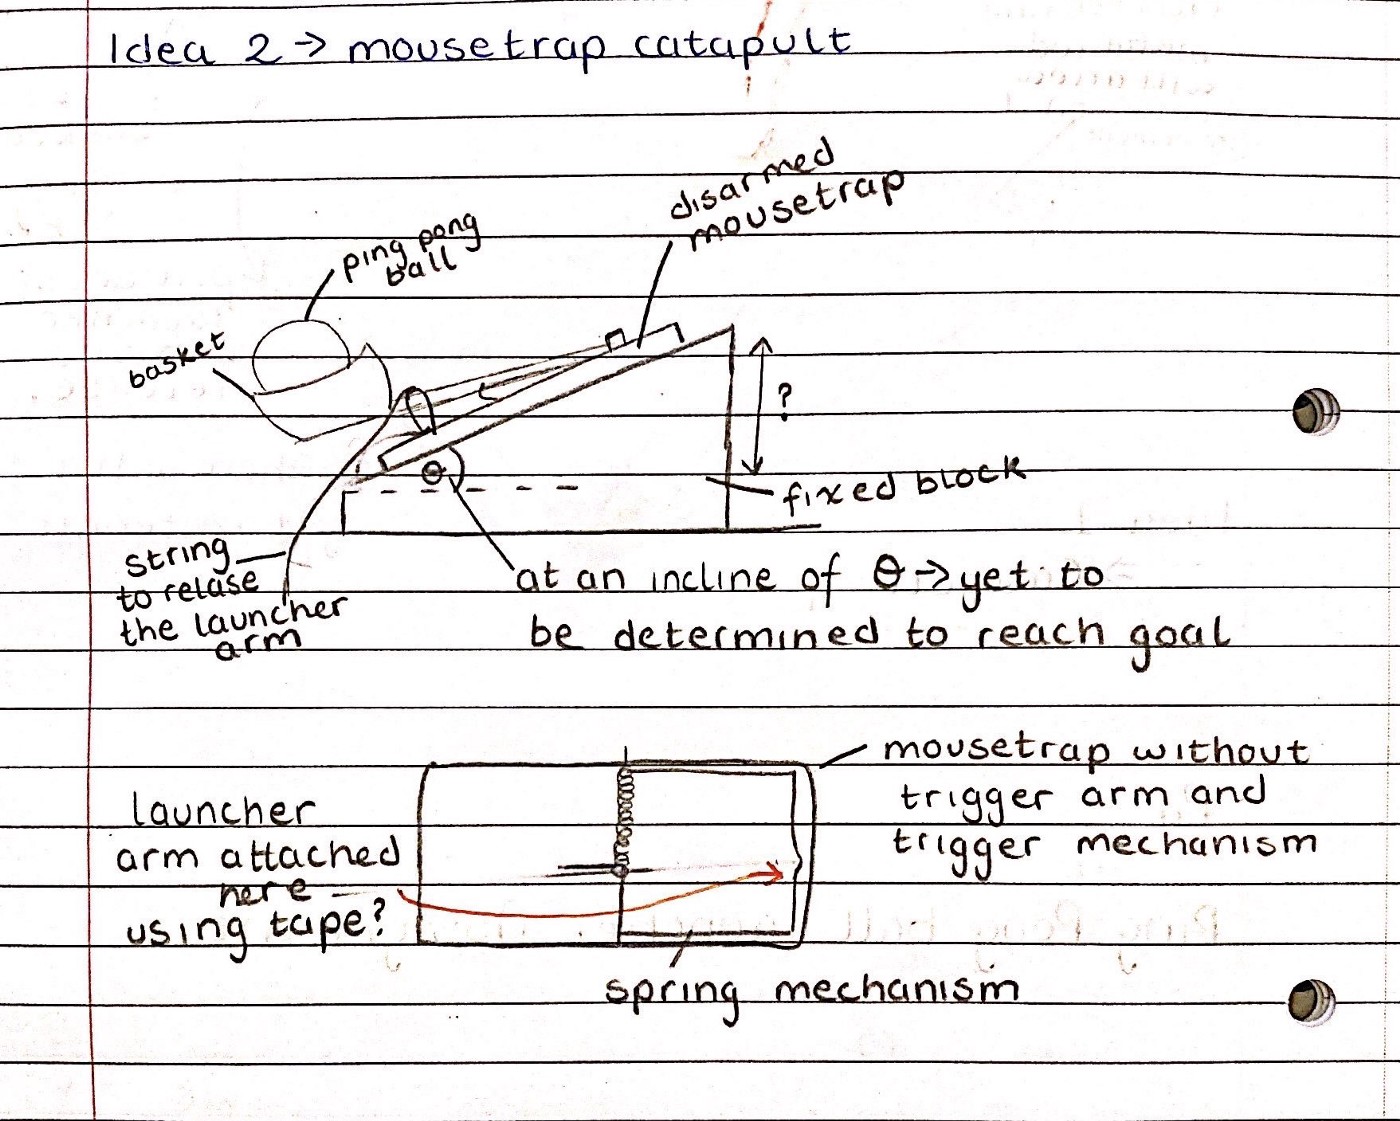 Idea 2 → mousetrap catapult
disarmed
mousetrap
ping pong
ball
basket
?
θ
fixed block
string
to relase
the launcher
arm
at an incline of θ → yet to
be determined to reach goal
mousetrap without
trigger arm and
trigger mechanism
launcher
arm attached
here
using tape?
spring mechanism